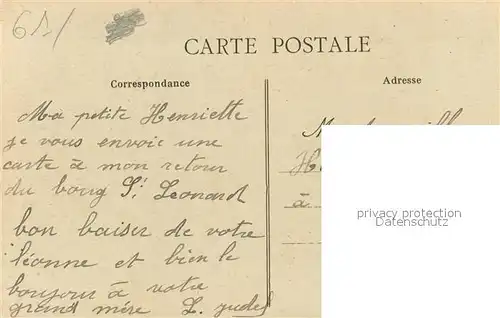 61/
CARTE POSTALE
Correspondance
Adresse
Ma petite Henriette
je vous envoie une
carte à mon retour
du bourg St Leonard
bon baiser de votre
léonne et bien le
bonjour à votre
grand mère L.
à
privacy protection
Datenschutz